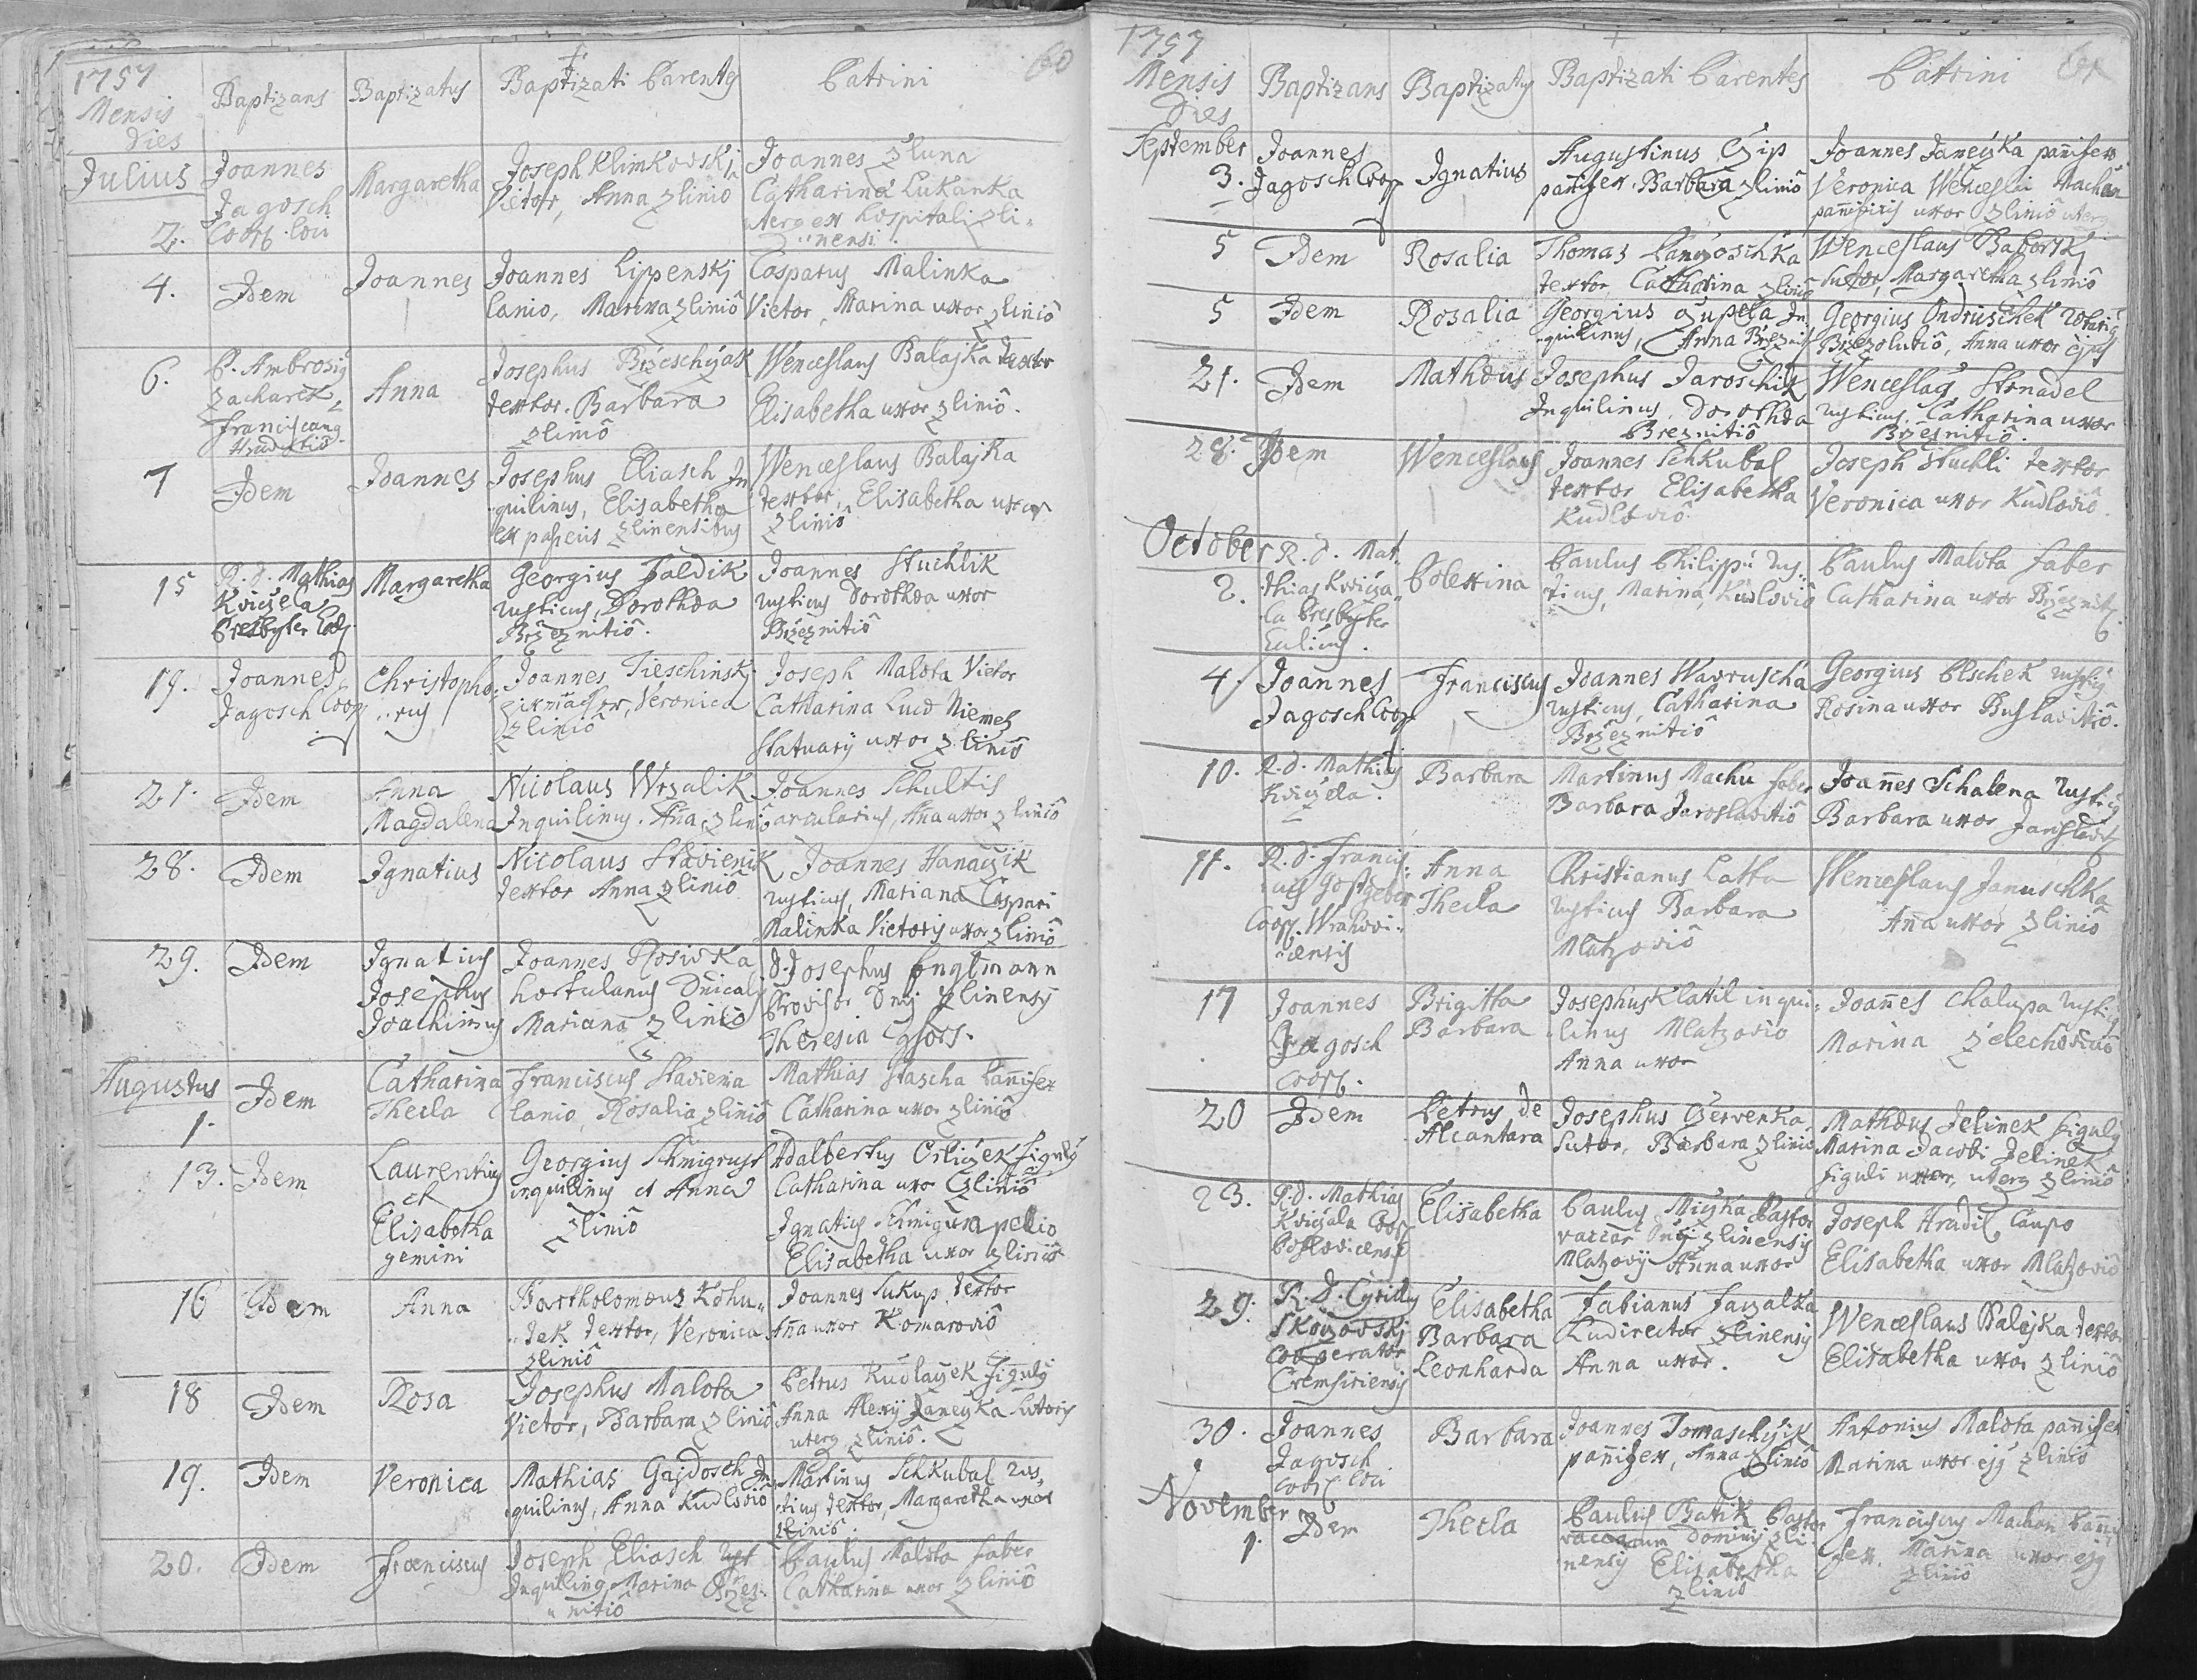 1757
60
Mensis
Dies
Baptizans
Baptizatus
Baptizati Parentes
Patrini
Julius
2.
Joannes
Jagosch
Coop. loci
Margaretha
Joseph Klimkovskj
Vietor, Anna Zlinio
Joannes Zluna
Catharina Lukanka
uterq ex hospitali Zli-
nensi.
4.
Idem
Joannes
Joannes Lippenskj
Lanio, Marina Zlinio
Casparus Malinka
Vietor, Marina uxor Zlinio
6.
P. Ambrosig
Zacharek
Franciscang
Hradistio
Anna
Josephus Brzeschczak
textor. Barbara
Zlinio
Wenceslaus Balajka textor
Elisabetha uxor Zlinio.
7
Idem
Joannes
Josephus Eliasch In
quilinus, Elisabetha
Zlinensibus
Wenceslaus Balajka
textor, Elisabetha uxor
Zlinio
15
R. d. Mathias
Kviczela
Presbyter
Margaretha
Georgius Faldik
rusticus, Dorothea
Brzeznitio.
Joannes Stuchlik
rusticus Dorothea uxor
Brzeznitio
19.
Joannes
Jagosch Coop
Christopho-
rus
Joannes Tieschinskj
Veronica
Zlinio
Joseph Malota Vietor
Catharina Niemetz
Statuarij uxor Zlinio
21.
Idem
Anna
Magdalena
Nicolaus Wrzalik
Inquilinus. Ana Zlinio
Joannes Schultis
arcularius, Ana uxor Zlinio
28.
Idem
Ignatius
Nicolaus Stavienik
textor Anna Zlinio
Joannes Hanaczik
rusticus, Mariana Caspari
Malinka Vietoris uxor Zlinio
29.
Idem
Ignatius
Josephus
Joachimus
Joannes Rosivka
hortulanus Dnicalis
Mariana Zlinio
D. Josephus Englmann
Provisor Dnij Zlinensis
Theresia Consors.
Augustus
1.
Idem
Catharina
Thecla
Franciscus Staviena
Lanio, Rosalia Zlinio
Mathias Stascha Pannifex
Catharina uxor Zlinio
13.
Idem
Laurentius
et
Elisabetha
gemini
Georgius
inquilinus et Anna
Zlinio
Adalbertus Orliczek figulg
Catharina uxor Zlinio
Ignatius Schmigura pellio
Elisabetha uxor Zlinio
16
Idem
Anna
Bartholomeus Kohu-
tek textor, Veronica
Zlinio
Joannes Sukup textor
Ana uxor Komarovio
18
Idem
Rosa
Josephus Malota
Vietor, Barbara Zlinio
Petrus Kudlaczek figulg
Anna Alexij Janeczka Sutoris
uterq Zlinio.
19.
Idem
Veronica
Mathias Gajdosch In
quilinus, Anna Kudlovio
Martinus Schkubal rus-
ticus textor, Margaretha uxor
Zlinio.
20.
Idem
Franciscus
Joseph Eliasch
Inquiling Marina Brzez-
nitio
Paulus Malota faber
Catharina uxor Zlinio
1757
Mensis
Dies
Baptizans
Baptizatus
Baptizati Parentes
Patrini
September
3.
Joannes
Jagosch Coop
Ignatius
Augustinus Czip
panifex. Barbara Zlinio
Joannes Janeczka panifex
Veronica Wenceslai Machan
pannificis uxor Zlinio uterq
5
Idem
Rosalia
Thomas
textor, Catharina Zlinio
Wenceslaus Baborskj
sutor, Margaretha Zlinio
5
Idem
Rosalia
Georgius Czupera In
quilinus, Anna Brzeznit
Georgius Ondruschek
Brzezolubio, Anna uxor ejus
21.
Idem
Matheus
Josephus Jaroschik
Inquilinus, Dorothea
Breznitio
Wenceslaus Strnadel
rusticus, Catharina uxor
Brzeznitio.
28.
Idem
Wenceslaus
Joannes Schkubal
textor Elisabetha
Kudlovio
Joseph Stuchli textor
Veronica uxor Kudlovio.
October
2.
R. d. Mat-
thias Kvicza-
la Presbyter
Paulus Philippi rus-
ticus, Marina, Kudlovio
Paulus Malota faber
Catharina uxor Brzeznit
4.
Joannes
Jagosch Coop
Franciscus
Joannes Wavruscha
rusticus, Catharina
Brzeznitio
Georgius Olschek rusticg
Rosina uxor
10.
R. d. Mathias
Kviczela.
Barbara
Martinus Machu faber
Barbara Jaroslavitio
Joannes Schalena rusticg
Barbara uxor Jaroslavit
11.
R. d. Francis-
cus Gostgeber
Coop. Wrahovi-
censis
Anna
Thecla
Christianus Latta
rusticus Barbara
Mlatzovio
Wenceslaus Januschka
Ana uxor Zlinio
17
Joannes
Jagosch
Coop.
Brigitta
Barbara
Josephus Klatil inqui-
linus Mlatzovio
Anna uxor
Joannes Chalupa rusticg
Marina Zelechovicio
20
Idem
Petrus de
Alcantara
Josephus Czervenka,
Sutor, Barbara Zlinio
Matheus Jelinek figulg
Marina Jacobi Jelinek
figuli uxor, uterq Zlinio
23.
R. d. Mathias
Kviczala Coop
Elisabetha
Paulus Miczka Pastor
vaccar Dnij Zlinensis
Mlatzovij Anna uxor
Joseph Hradil Caupo
Elisabetha uxor Mlatzovio
29.
R. D. Cyrillus
Skoczovskj
Cooperator
Cremsiriensis
Elisabetha
Barbara
Leonharda
Fabianus Faczalka
Ludirector Zlinensis
Anna uxor.
Wenceslaus Balejka textor
Elisabetha uxor Zlinio
30.
Joannes
Jagosch
Coop loci
Barbara
Joannes Tomaschczik
panifex, Anna Zlinio
Antonius Malota panifex
Marina uxor ejg Zlinio
November
1.
Idem
Thecla
Paulus Batik Pastor
vaccarum Dominij Zli-
nensis Elisabetha
Zlinio
Franciscus Machan Panni
fex. Marina uxor ejg
Zlinio